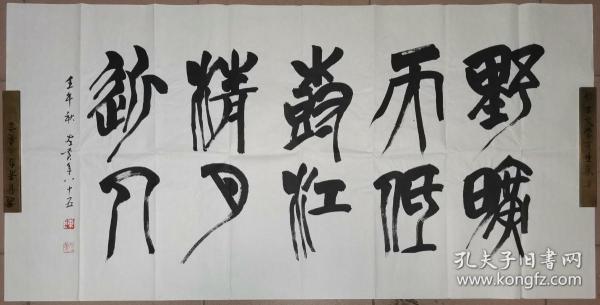 野曠
天低
樹江
清月
近人
壬午秋 年八十五
孔夫子旧书网
www.kongfz.com